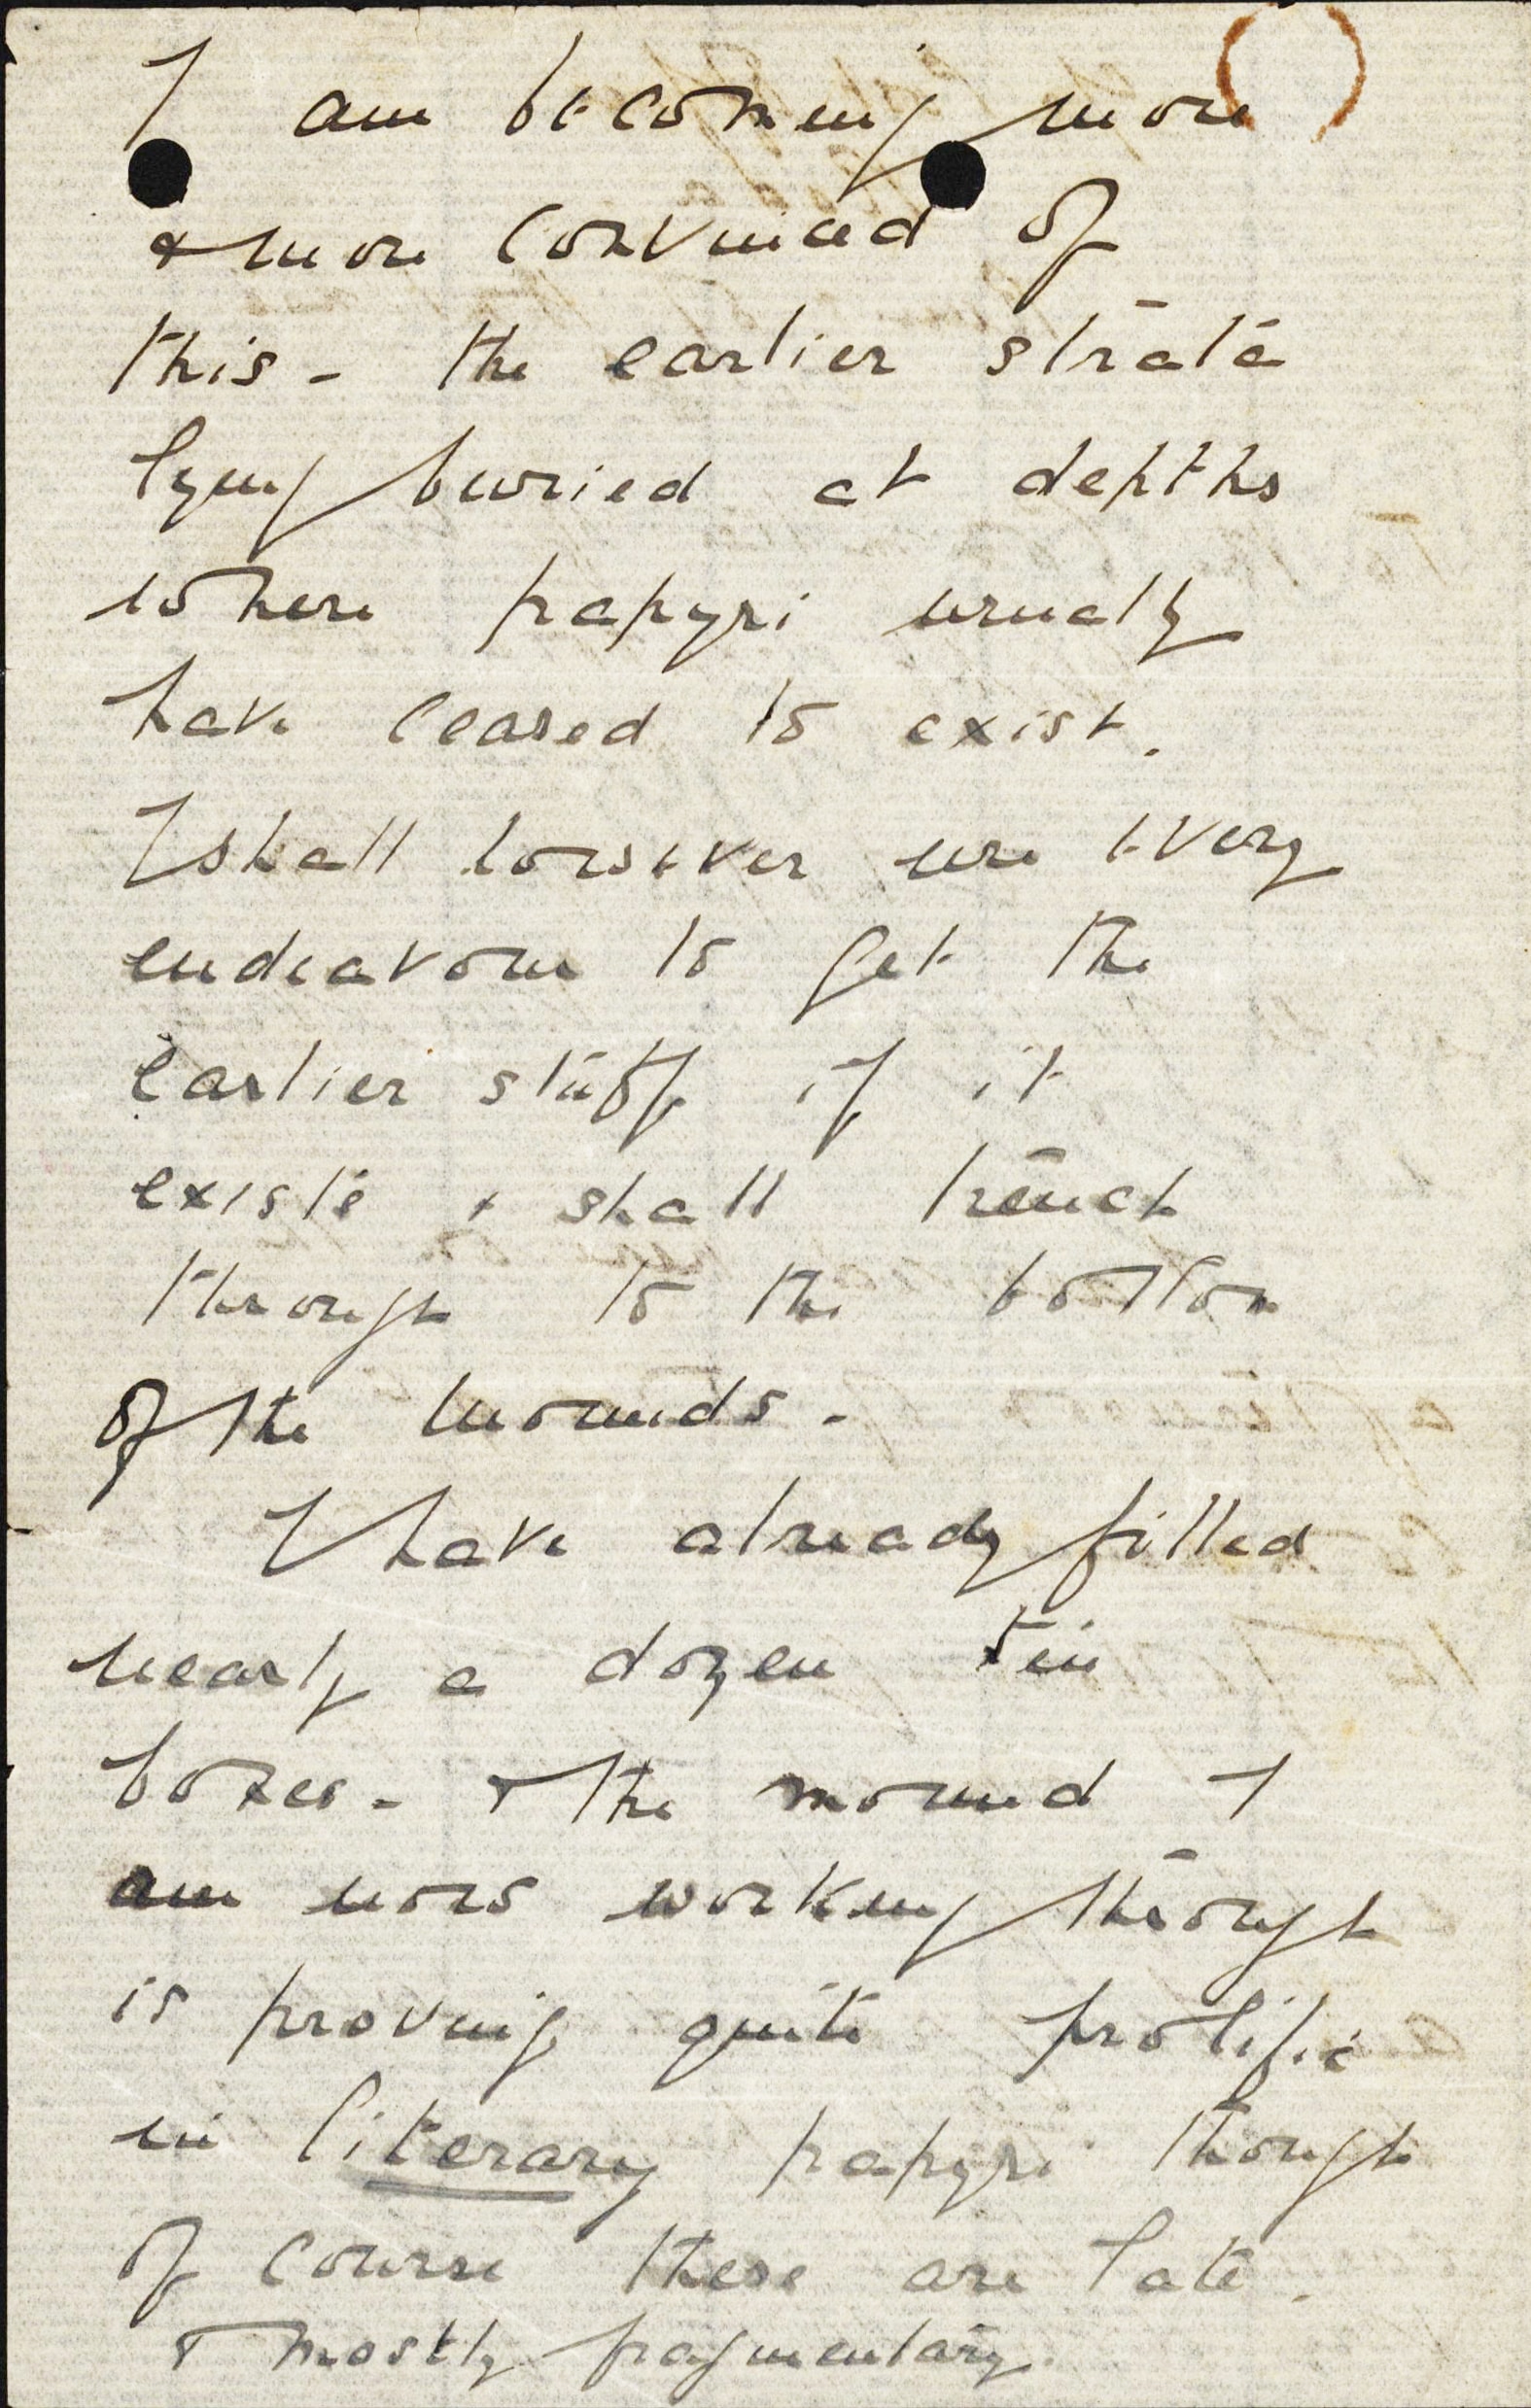 I am becoming more
& more convinced of
this - the earlier strata
lying buried at depths
where papyri usually
have ceased to exist.
I shall however use every
endeavour to get the
earlier stuff if it
exists & shall trench
through to the bottom
of the mounds -
I have already filled
nearly a dozen tin
boxes - & the mound I
am now working through
is proving quite prolific
in literary papyri though
of course these are late.
& mostly fragmentary.